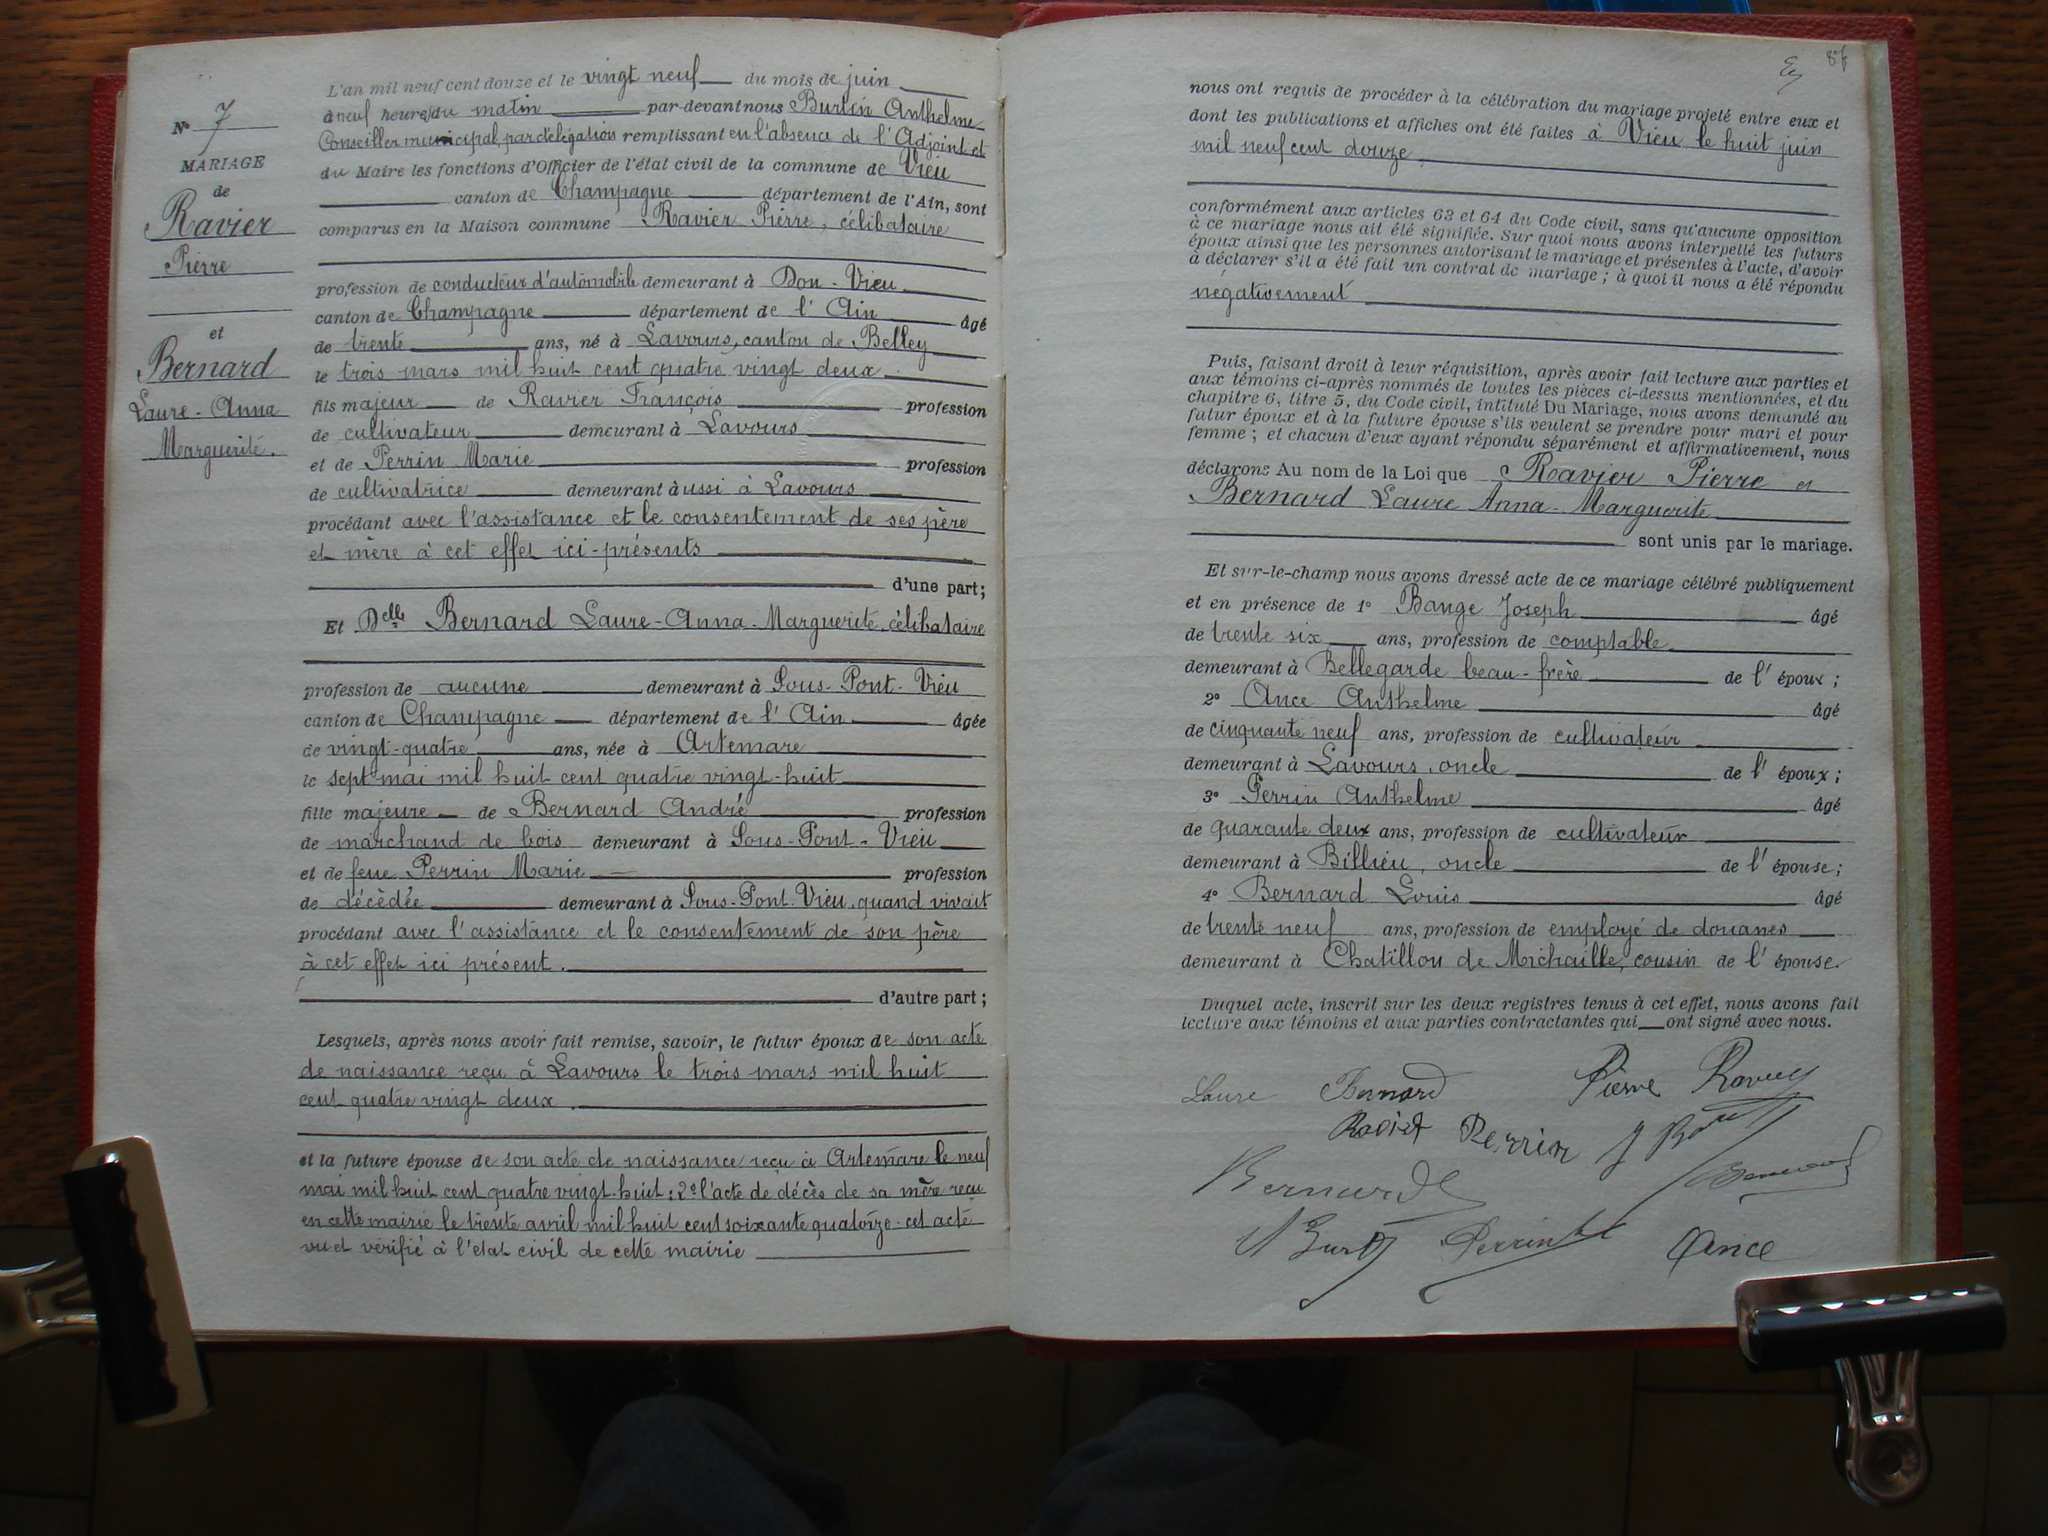 N° 7
MARIAGE
de
Ravier
Pierre
et
Bernard
Laure-Anna
Marguerite.
L'an mil neuf cent douze et le vingt neuf du mois de juin
à neuf heures du matin par-devant nous Burtin Anthelme
Conseiller municipal, par délégation remplissant en l'absence de l'Adjoint et
du Maire les fonctions d'Officier de l'état civil de la commune de Vieu
canton de Champagne département de l'Ain, sont
comparus en la Maison commune Ravier Pierre, célibataire
profession de conducteur d'automobile demeurant à Don-Vieu
canton de Champagne département de l'Ain âgé
de trente ans, né à Lavours, canton de Belley
le trois mars mil huit cent quatre vingt deux
fils majeur de Ravier François profession
de cultivateur demeurant à Lavours
et de Perrin Marie profession
de cultivatrice demeurant aussi à Lavours
procédant avec l'assistance et le consentement de ses père
et mère à cet effet ici-présents
d'une part;
Et Delle Bernard Laure-Anna-Marguerite, célibataire
profession de aucune demeurant à Sous-Pont-Vieu
canton de Champagne département de l'Ain âgée
de vingt-quatre ans, née à Artemare
le sept mai mil huit cent quatre vingt-huit
fille majeure de Bernard André profession
de marchand de bois demeurant à Sous-Pont-Vieu
et de feue Perrin Marie profession
de décédée demeurant à Sous-Pont-Vieu, quand vivait
procédant avec l'assistance et le consentement de son père
à cet effet ici présent.
d'autre part;
Lesquels, après nous avoir fait remise, savoir, le futur époux de son acte
de naissance reçu à Lavours le trois mars mil huit
cent quatre vingt deux.
et la future épouse de son acte de naissance reçu à Artemare le neuf
mai mil huit cent quatre vingt-huit; 2° l'acte de décès de sa mère reçu
en cette mairie le trente avril mil huit cent soixante quatorze - cet acte
vu et vérifié à l'etat civil de cette mairie
nous ont requis de procéder à la célébration du mariage projeté entre eux et
dont les publications et affiches ont été faites à Vieu le huit juin
mil neuf cent douze.
conformément aux articles 63 et 64 du Code civil, sans qu'aucune opposition
à ce mariage nous ait été signifiée. Sur quoi nous avons interpellé les futurs
époux ainsi que les personnes autorisant le mariage et présentes à l'acte, d'avoir
à déclarer s'il a été fait un contrat de mariage; à quoi il nous a été répondu
négativement
Puis, faisant droit à leur réquisition, après avoir fait lecture aux parties et
aux témoins ci-après nommés de toutes les pièces ci-dessus mentionnées, et du
chapitre 6, titre 5, du Code civil, intitulé Du Mariage, nous avons demandé au
futur époux et à la future épouse s'ils veulent se prendre pour mari et pour
femme; et chacun d'eux ayant répondu séparément et affirmativement, nous
déclarons Au nom de la Loi que Ravier Pierre et
Bernard Laure Anna-Marguerite
sont unis par le mariage.
Et sur-le-champ nous avons dressé acte de ce mariage célébré publiquement
et en présence de 1° Bange Joseph âgé
de trente six ans, profession de comptable
demeurant à Bellegarde beau-frère de l'époux;
2° Ance Anthelme âgé
de cinquante neuf ans, profession de cultivateur
demeurant à Lavours, oncle de l'époux;
3° Perrin Anthelme âgé
de quarante deux ans, profession de cultivateur
demeurant à Billieu, oncle de l'épouse;
4° Bernard Louis âgé
de trente neuf ans, profession de employé de douanes
demeurant à Chatillon de Michaille, cousin de l'épouse.
Duquel acte, inscrit sur les deux registres tenus à cet effet, nous avons fait
lecture aux témoins et aux parties contractantes qui ont signé avec nous.
Laure Bernard Pierre Ravier
Ravier Perrin
Bernard
Perrin Ance